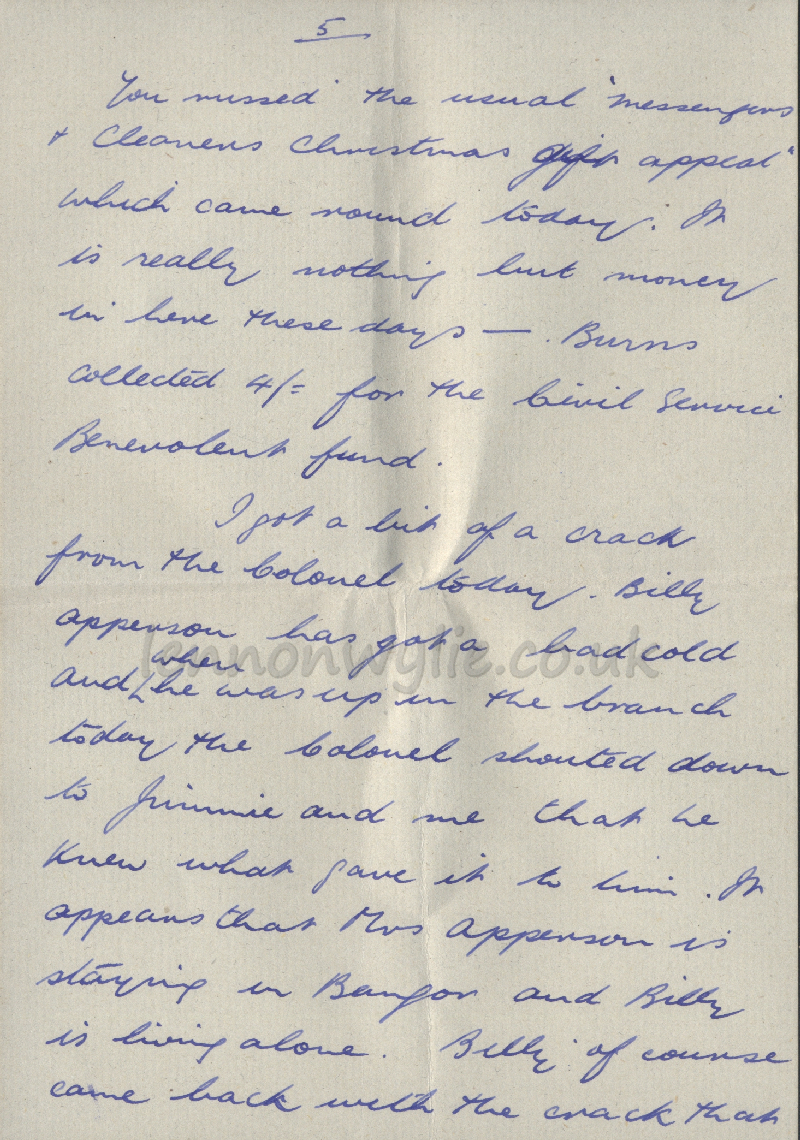 5
You missed the usual "Messengers
& Cleaners Christmas gift appeal"
which came round today. It
is really nothing but money
in here these days — . Burns
collected 4/= for the Civil Service
Benevolent fund.
I got a bit of a crack
from the Colonel today. Billy
Apperson has got a bad cold
when
and he was up in the branch
today the Colonel shouted down
to Jimmie and me that he
knew what gave it to him. It
appears that Mrs Apperson is
staying in Bangor and Billy
is living alone. Billy of course
came back with the crack that
lennonwylie.co.uk